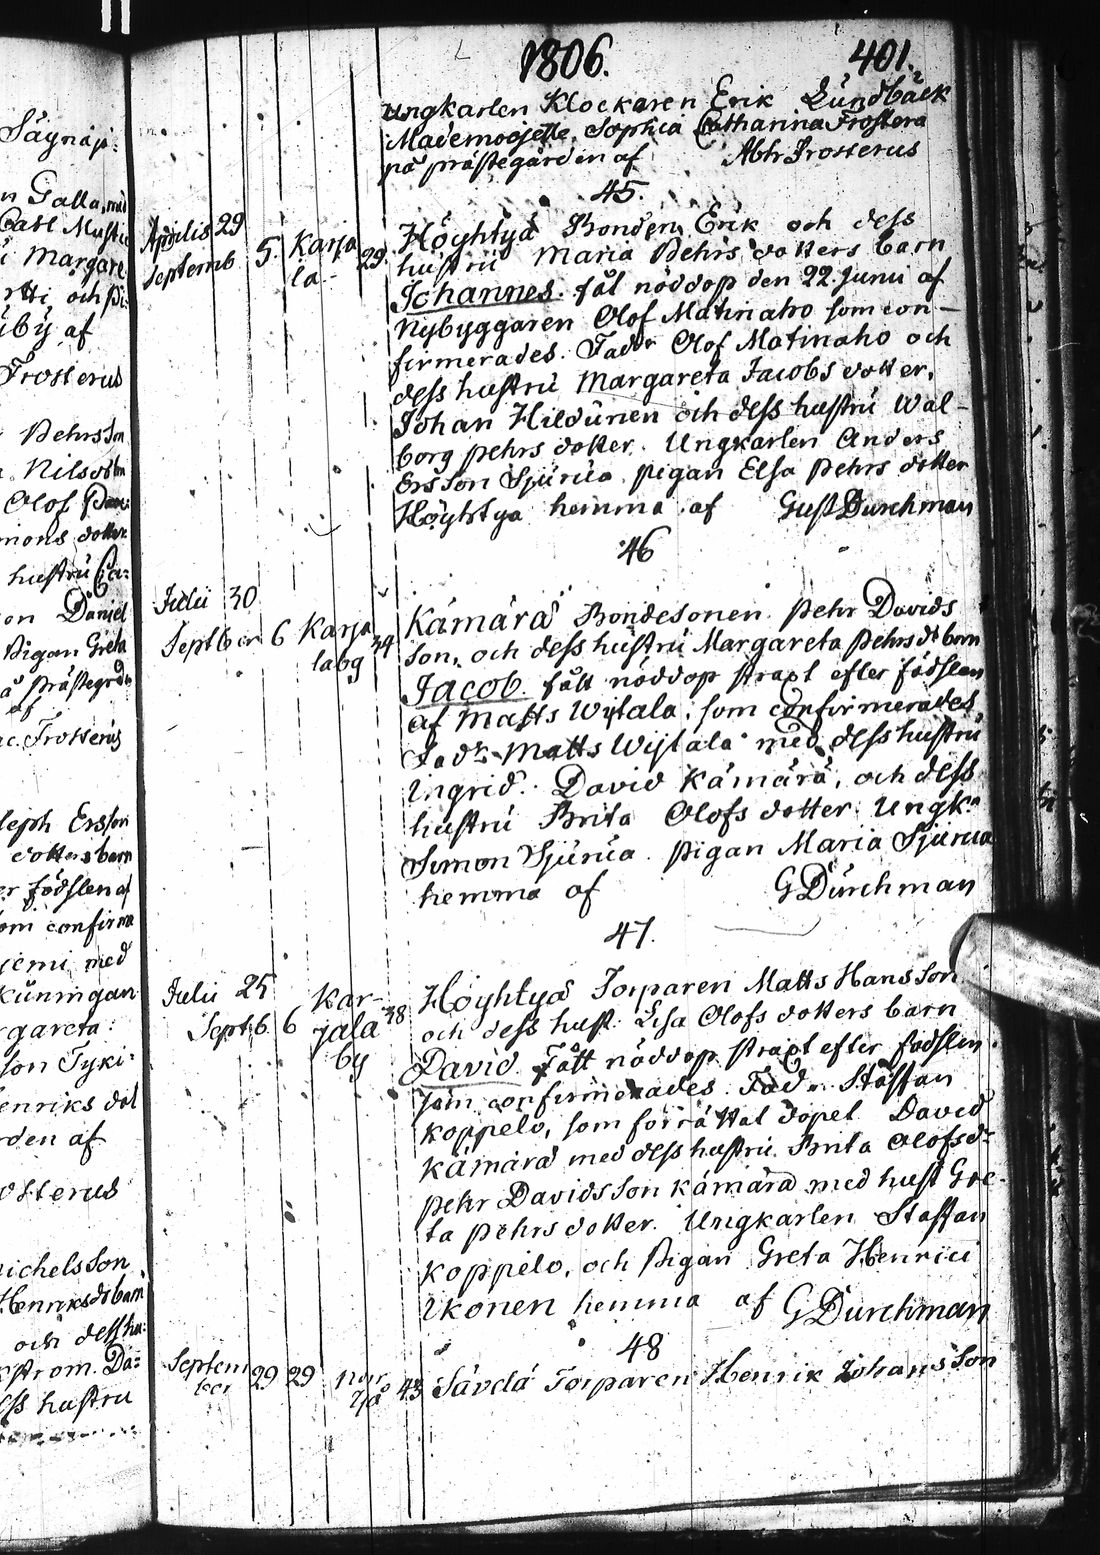 Säynäjä:
n Galla, med
Carl Matts
i Margare
rtti, och Pi:
by af
Frosterus
Pehrsson
Nilsdotter
Olof
mons dotter
hustru Ca:
on Daniel
Pigan Greta
å prästegrdn
af
ac. Frosterus
seph Ersson
dotters barn
er födslen af
om confirme
jemi med
Kuningan
rgareta
son Tyki:
enriks dot
rden af
osterus
ichelsson
Henriksdt barn
och dess hu:
kström. Da=
ess hustru
1806. 401.
ungkarlen Klockaren Erik Lundbäck
Mademoiselle Sophia Catharina Frostera
på prästegården af Abh Frosterus
45.
Aprilis 29
Septemb 5. Karja
la 29
Höyhtyä Bonden Erik och dess
hustru Maria Pehrs dotters barn
Johannes. fåt nöddop den 22. Junii af
Nybyggaren Olof Matinaho som con-
firmerades. Fadr Olof Matinaho och
dess hustru Margareta Jacobs dotter,
Johan Hildunen och dess hustru Wal-
borg pehrs dotter. Ungkarlen Anders
Ersson Sjurua. pigan Elsa pehrs dotter
Höyhtya hemma af Gust Durchman
46
Julii 30
September 6 Karja
laby 34
Kämärä Bondesonen pehr Davids
son, och dess hustru Margareta Pehrsdt barn
Jacob. fått nöddop straxt efter födslen
af Matts Wijtala, som confirmerades
Fadr Matts Wijtala med dess hustru
Ingrid. David Kämärä, och dess
hustru Brita Olofs dotter. Ungkn
Simon Sjurua. pigan Maria Sjurua
hemma af G Durchman
47.
Julii 25
Septb 6 Kar-
jala
by 38
Höyhtyä Torparen Matts Hansson
och dess hust. Lisa Olofs dotters barn
David. Fått nöddop straxt efter födslen.
som confirmerades. Fad. Staffan
Koppelo, som förrättat dopet David
Kämärä med dess hustru Brita Olofsdr
pehr Davidsson Kämärä med hust Gre-
ta pehrs dotter. Ungkarlen Staffan
Koppelo, och Pigan Greta Henrici
Ikonen hemma af G Durchman
48
Septem
ber 29 29 norr
ljå 43 Sávelá Torparen Henrik Johansson